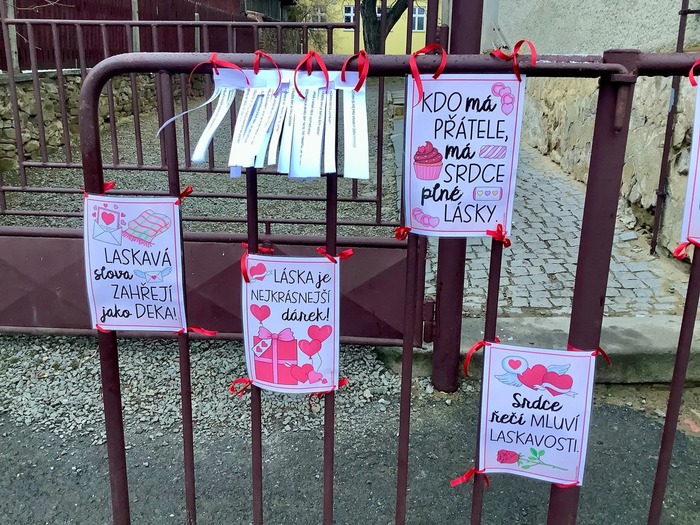 KDO má
PŘÁTELE,
má
SRDCE
plné
LÁSKY.
LASKAVÁ
slova
ZAHŘEJÍ
jako DEKA!
LÁSKA je
NEJKRÁSNEJŠÍ
dárek!
Srdce
řečí MLUVÍ
LASKAVOSTI.